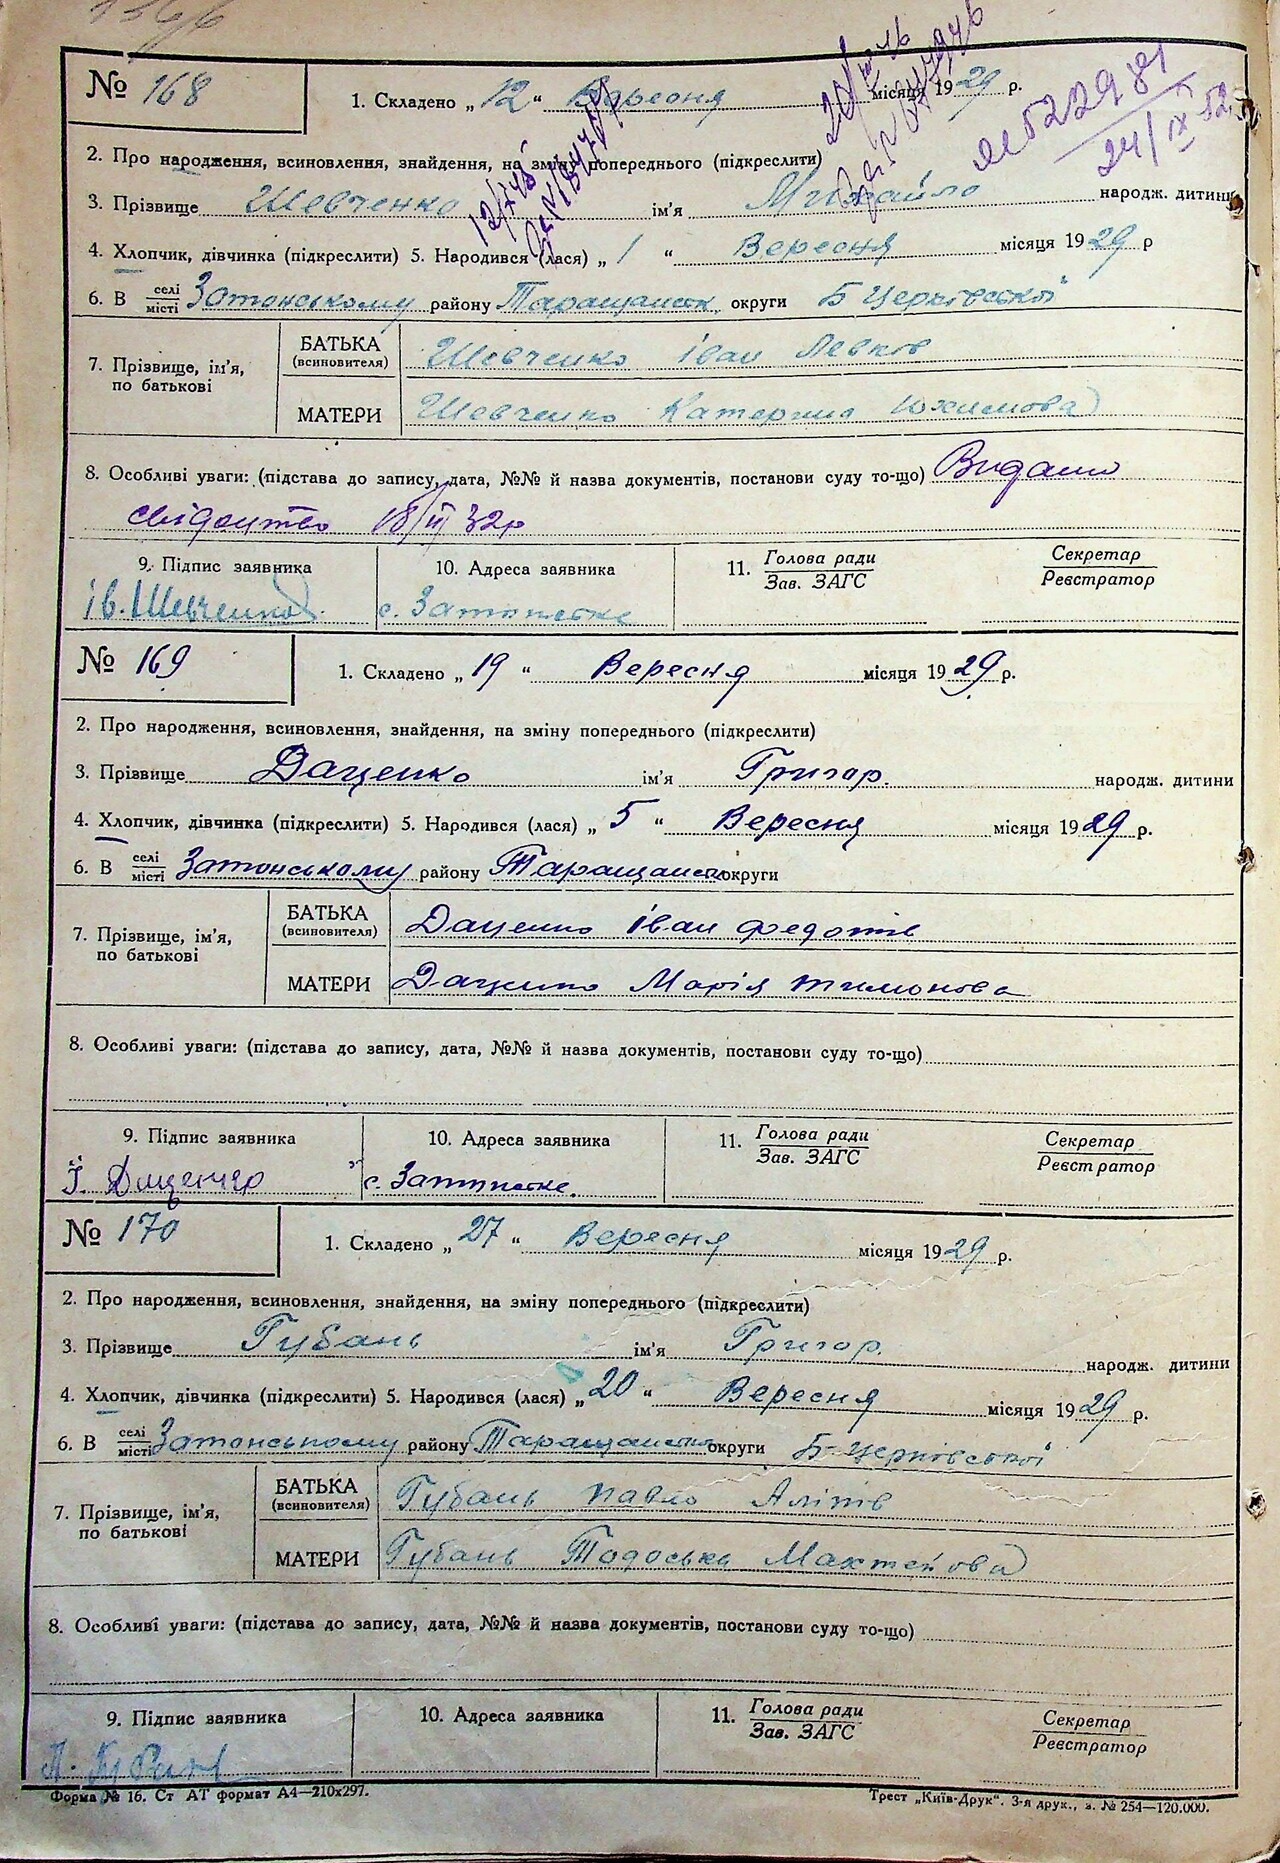 № 168
1. Складено „ 12 “ Вересня місяця 1929 р.
2. Про народження, всиновлення, знайдення, на зміну попереднього (підкреслити)
3. Прізвище Шевченко ім'я Михайло народж. дитини
4. Хлопчик, дівчинка (підкреслити) 5. Народився (лася) „ 1 “ Вересня місяця 1929 р
6. В селі/місті Затонському району Таращанськ. округи Б Церківської
7. Прізвище, ім'я, по батькові
БАТЬКА (всиновителя) Шевченко Іван Левков
МАТЕРИ Шевченко Катерина Юхимова
8. Особливі уваги: (підстава до запису, дата, №№ й назва документів, постанови суду то-що) Видано
свідоцтво 18/II 32р
9. Підпис заявника 10. Адреса заявника 11. Голова ради/Зав. ЗАГС Секретар/Реєстратор
Ів. Шевченко с.
№ 169
1. Складено „ 19 “ Вересня місяця 1929 р.
2. Про народження, всиновлення, знайдення, на зміну попереднього (підкреслити)
3. Прізвище Даценко ім'я Григор. народж. дитини
4. Хлопчик, дівчинка (підкреслити) 5. Народився (лася) „ 5 “ Вересня місяця 1929 р.
6. В селі/місті Затонському району Таращанськ округи
7. Прізвище, ім'я, по батькові
БАТЬКА (всиновителя) Даценко Іван Федотів
МАТЕРИ Даценко Марія Тимонова
8. Особливі уваги: (підстава до запису, дата, №№ й назва документів, постанови суду то-що)
9. Підпис заявника 10. Адреса заявника 11. Голова ради/Зав. ЗАГС Секретар/Реєстратор
І. Даценко с.
№ 170
1. Складено „ 27 “ Вересня місяця 1929 р.
2. Про народження, всиновлення, знайдення, на зміну попереднього (підкреслити)
3. Прізвище Губань ім'я Григор. народж. дитини
4. Хлопчик, дівчинка (підкреслити) 5. Народився (лася) „ 20 “ Вересня місяця 1929 р.
6. В селі/місті Затонському району Таращанськ округи Б-Церківської
7. Прізвище, ім'я, по батькові
БАТЬКА (всиновителя) Губань Павло Аліпів
МАТЕРИ Губань Тодоська Махтейова
8. Особливі уваги: (підстава до запису, дата, №№ й назва документів, постанови суду то-що)
9. Підпис заявника 10. Адреса заявника 11. Голова ради/Зав. ЗАГС Секретар/Реєстратор
Форма № 16. Ст АТ формат А4—210х297. Трест „Київ-Друк“. 3-я друк., з. № 254—120.000.